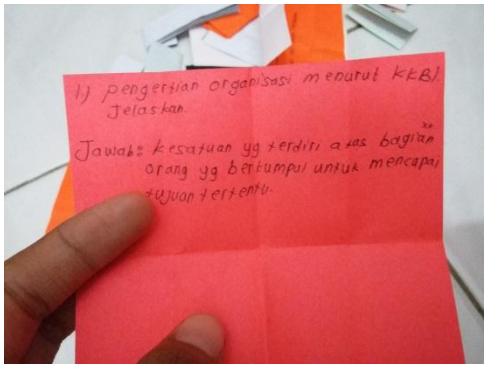 1.) Pengertian organisasi menurut KKBI.
Jelaskan.
Jawab: Kesatuan yg terdiri atas bagian"
orang yg berkumpul untuk mencapai
tujuan tertentu.